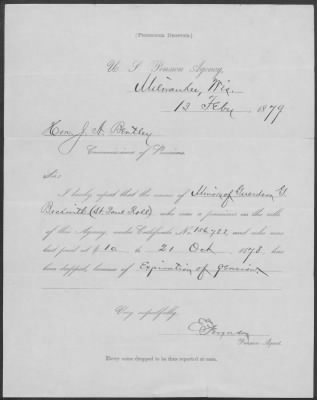 [PENSIONER DROPPED.]
U. S. Pension Agency,
Milwaukee, Wis.
12 Feby 1879
Hon. J. A. Bentley
Commissioner of Pensions.
Sir:
I hereby report that the name of Minor of Guerdon G.
Beckwith (St Paul Roll) who was a pensioner on the rolls
of this Agency, under Certificate No. 186,722, and who was
last paid at $ 10 to 21 Oct 1878, has
been dropped, because of Expiration of pension.
Very respectfully,
Pension Agent.
Every name dropped to be thus reported at once.